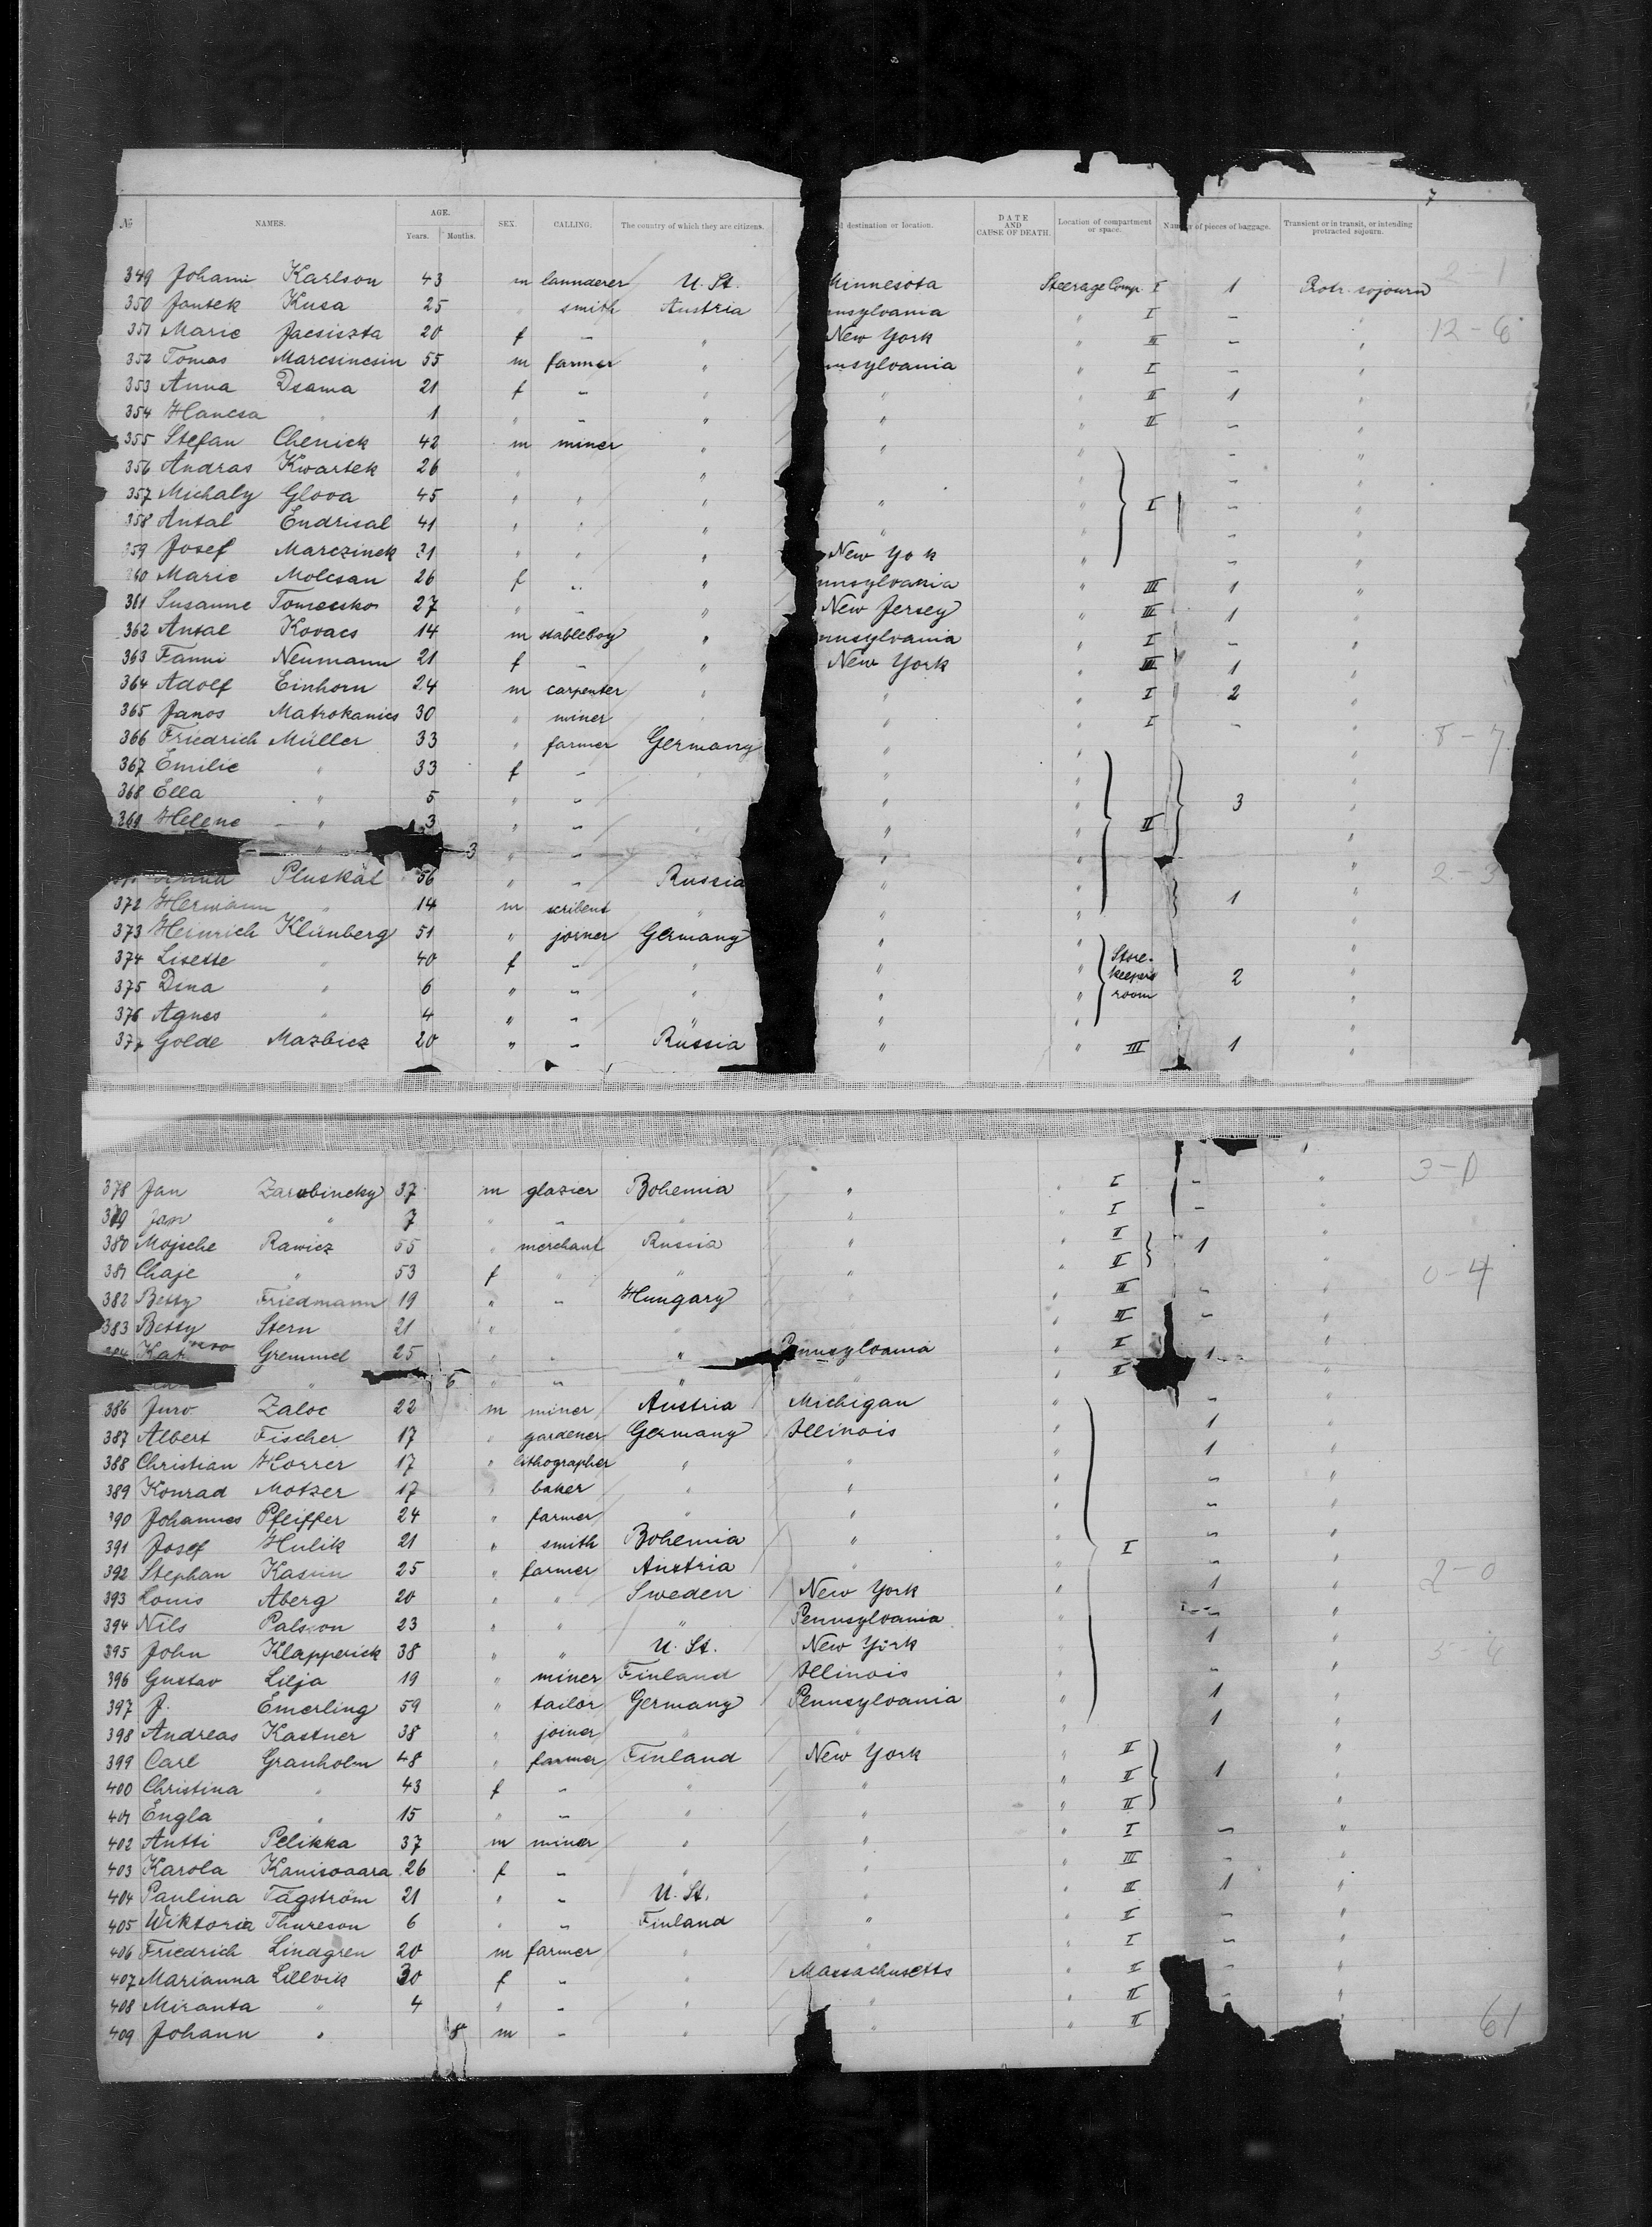 7
№ NAMES. AGE. Years. Months. SEX. CALLING. The country of which they are citizens. l destination or location. DATE AND CAUSE OF DEATH. Location of compartment or space. Num r of pieces of baggage. Transient or in transit, or intending protracted sojourn.
349 Johann Karlson 43 m launderer U. St. Minnesota Steerage Comp. I 1 Protr. sojourn 2-1
350 Jantek Kusa 25 " smith Austria nnsylvania " I – "
351 Marie Jacsiszta 20 f – " New York " III – " 12-6
352 Tomas Marcsincsin 55 m farmer " nnsylvania " I – "
353 Anna Dsama 21 f – " " " II 1 "
354 Hancsa " 1 " – " " " II – "
355 Stefan Chenick 42 m miner " " " – "
356 Andras Kwartek 26 " " " – "
357 Michaly Glova 45 " " " " " I – "
358 Antal Endrisal 41 " " " " " – "
359 Josef Marczinek 31 " " " New Yo k " – "
360 Marie Molcsan 26 f – " nnsylvania " III 1 "
361 Susanne Tomecsko 27 " – " New Jersey " III 1 "
362 Antal Kovacs 14 m stableboy " nnsylvania " I – "
363 Fanni Neumann 21 f – " New York " III 1 "
364 Adolf Einhorn 24 m carpenter " " " I 2 "
365 Janos Matrokanics 30 " miner " " " I – "
366 Friedrich Müller 33 " farmer Germany " " " 8-7
367 Emilie " 33 f – " " "
368 Ella " 5 " – " " 3 "
369 Helene " 3 " – " " " II "
" 3 " – " " "
Pluskal 56 " – Russia " " " 2-3
372 Hermann " 14 m scribent " " " 1 "
373 Heinrich Klünberg 51 " joiner Germany " " "
374 Lisette " 40 f – " " " Store-
375 Dina " 6 " – " " " keepers 2 "
376 Agnes " 4 " – " " " room "
377 Golde Mazbicz 20 " – Russia " " III 1 "
378 Jan Zarubincky 37 m glazier Bohemia " " I – " 3-0
379 Jan " 7 " – " " " I – "
380 Mojsche Rawicz 55 " merchant Russia " " II 1 "
381 Chaje " 53 f " " " " II " 0-4
382 Betty Friedmann 19 " – Hungary " III – "
383 Betty Stern 21 " " " III – "
384 Kat Gremmel 25 " – " Pennsylvania " I 1 "
" 6 " – " " " II "
386 Juro Zaloc 22 m miner Austria Michigan " – "
387 Albert Fischer 17 " gardener Germany Illinois " 1 "
388 Christian Horrer 17 " lithographer " " " 1 "
389 Konrad Motzer 17 " baker " " " – "
390 Johannes Pfeiffer 24 " farmer " " " – "
391 Josef Hulik 21 " smith Bohemia " " I – "
392 Stephan Kasun 25 " farmer Austria " " – "
393 Louis Aberg 20 " " Sweden New York " 1 " 2-0
394 Nils Palsson 23 " " " Pennsylvania " – "
395 John Klapperick 38 " " U. St. New York " 1 "
396 Gustav Lilja 19 " miner Finland Illinois " – "
397 J. Emerling 59 " tailor Germany Pennsylvania " 1 "
398 Andreas Kastner 38 " joiner " " " 1 "
399 Carl Granholm 48 " farmer Finland New York " II "
400 Christina " 43 f – " " " II 1 "
401 Engla " 15 " – " " " II "
402 Antti Pelikka 37 m miner " " " I – "
403 Karola Kanisvaara 26 f – " " " III – "
404 Paulina Tägström 21 " – U. St. " " III 1 "
405 Wiktoria Thureson 6 " – Finland " " I – "
406 Friedrich Lindgren 20 m farmer " " " I – "
407 Marianna Lillvik 30 f – " Massachusetts " I – "
408 Miranta " 4 " – " " " II – "
409 Johann " 8 m – " " " II 61